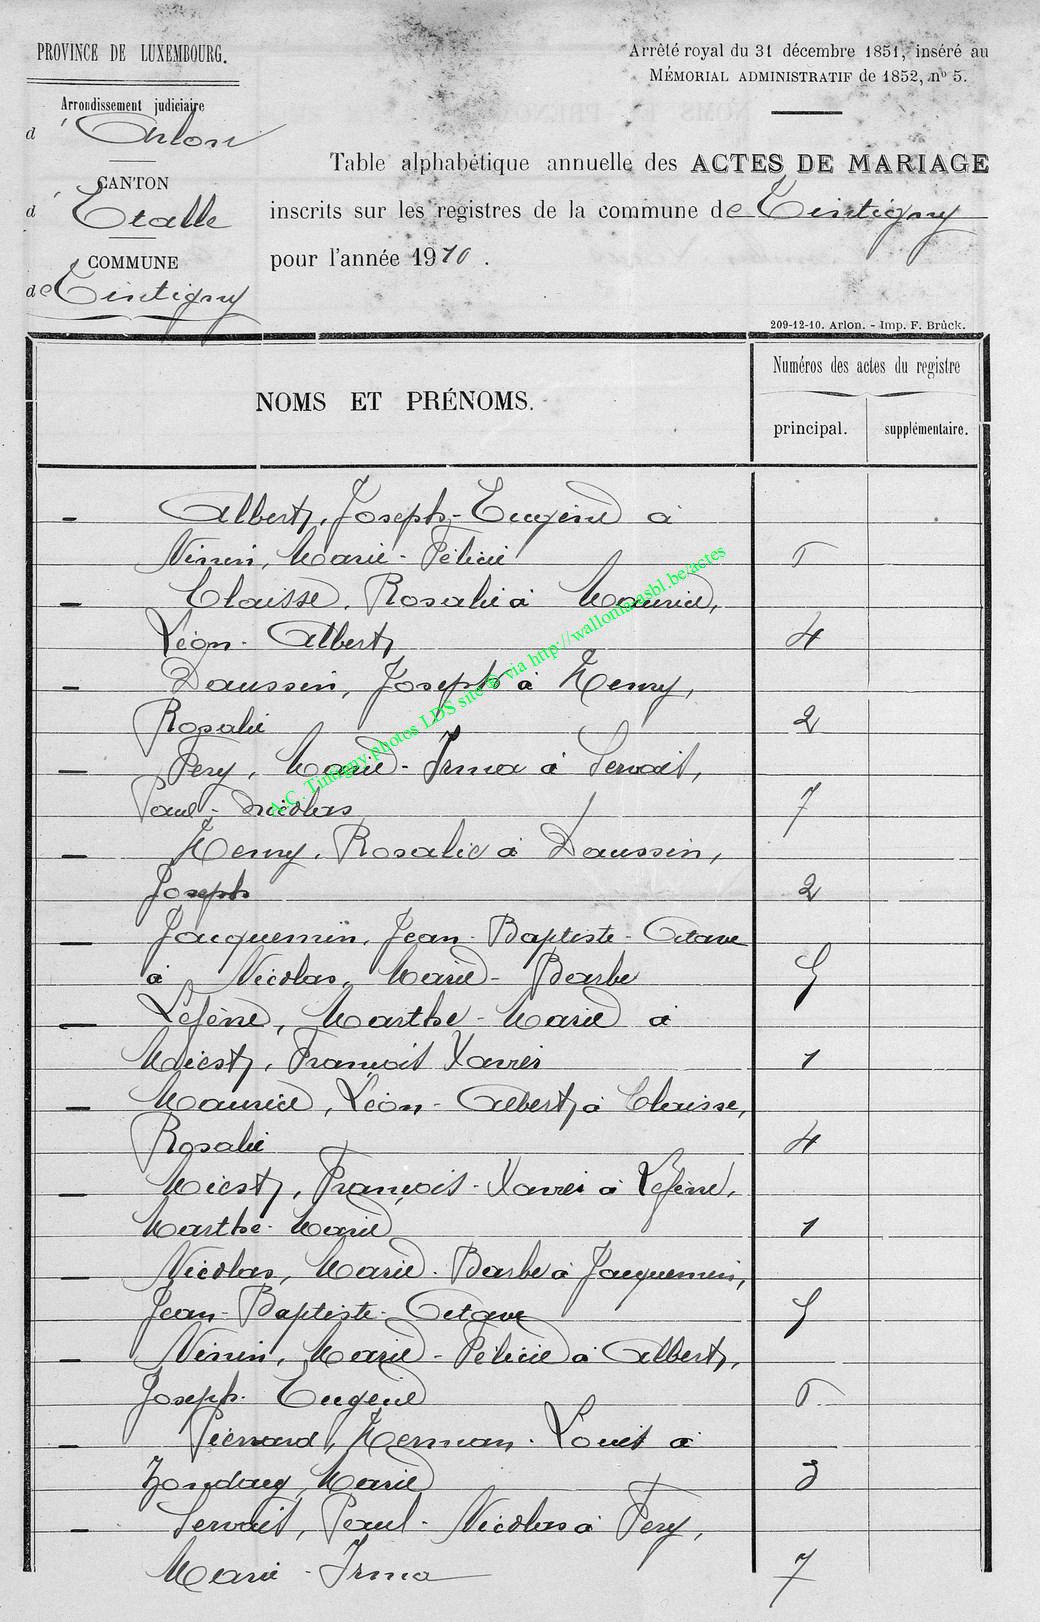 PROVINCE DE LUXEMBOURG.
Arrondissement judiciaire
d' Arlon
CANTON
d' Etalle
COMMUNE
de Tintigny
Arrêté royal du 31 décembre 1851, inséré au
MÉMORIAL ADMINISTRATIF de 1852, nº 5.
Table alphabétique annuelle des ACTES DE MARIAGE
inscrits sur les registres de la commune de Tintigny
pour l'année 1910.
209-12-10. Arlon. - Imp. F. Brück.
NOMS ET PRÉNOMS.
Numéros des actes du registre
principal.
supplémentaire.
— Albert, Joseph-Eugène à
Ninin, Marie-Félicie 5
— Claisse, Rosalie à Maurice,
Léon-Albert 4
— Daussin, Joseph à Henry,
Rosalie 2
— Fery, Marie-Irma à Servais,
Paul-Nicolas 7
— Henry, Rosalie à Daussin,
Joseph 2
— Jacquemin, Jean-Baptiste-Octave
à Nicolas, Marie-Barbe 6
— Lefèvre, Marthe-Marie à
Miest, François Xavier 1
— Maurice, Léon-Albert à Claisse,
Rosalie 4
— Miest, François-Xavier à Lefèvre,
Marthe-Marie 1
— Nicolas, Marie-Barbe à Jacquemin,
Jean-Baptiste-Octave 6
— Ninin, Marie-Félicie à Albert,
Joseph-Eugène 5
— Piérrard, Herman-Louis à
Marie 3
— Servais, Paul-Nicolas à Fery,
Marie-Irma 7
A.C. Tintigny photos LDS site © via http://walloniaasbl.be/actes